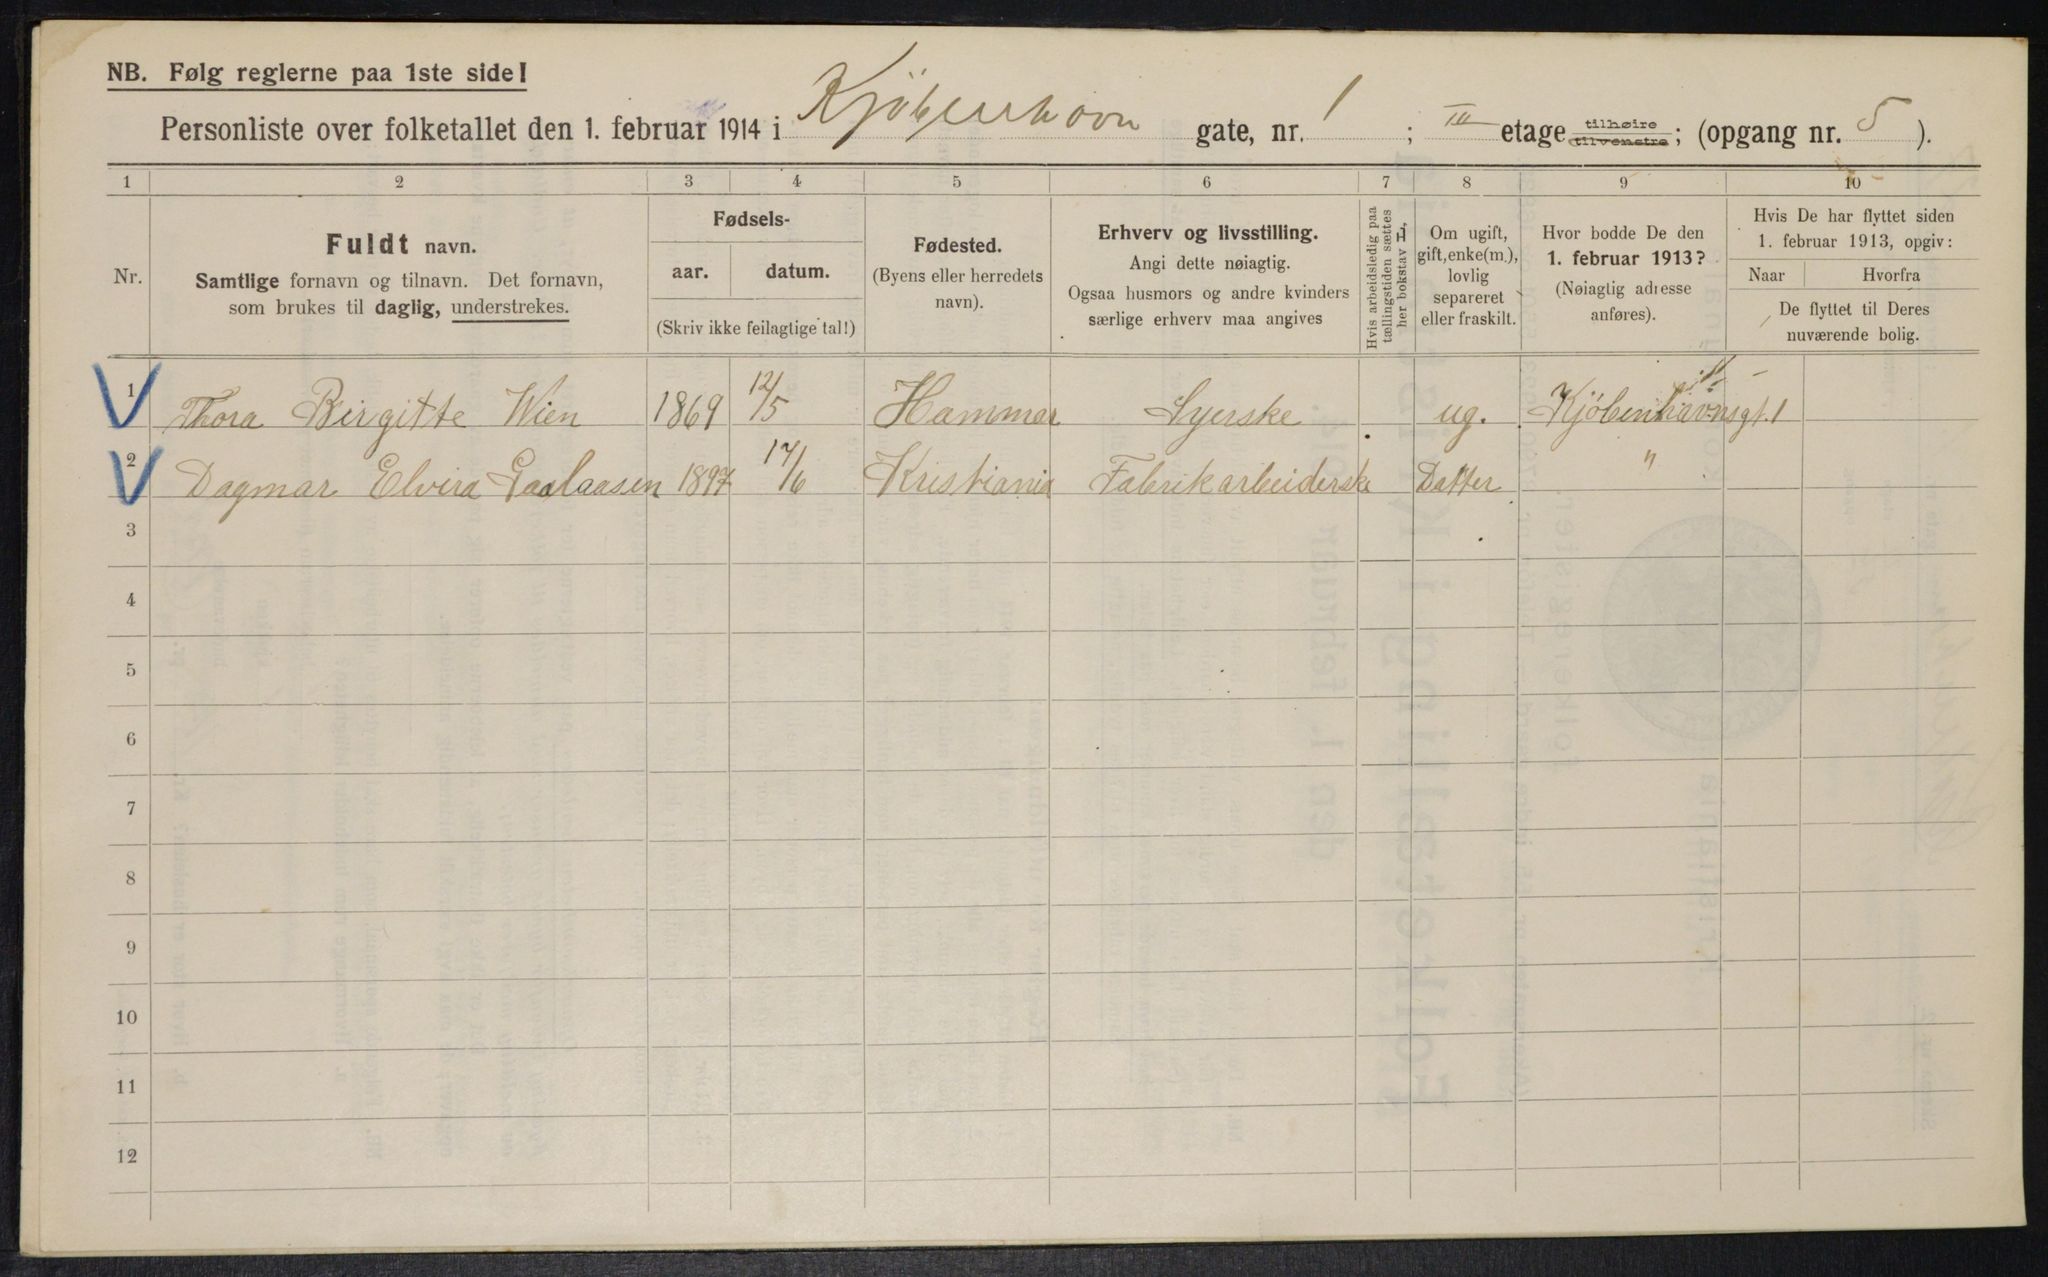 NB. Følg reglerne paa 1ste side!
Personliste over folketallet den 1. februar 1914 i Kjöbenhavn gate, nr. 1 ; III etage tilhøire tilvenstre; (opgang nr. 5 ).
1 2 3 4 5 6 7 8 9 10
Nr.
Fuldt navn.
Samtlige fornavn og tilnavn. Det fornavn,
som brukes til daglig, understrekes.
Fødsels-
aar. datum.
(Skriv ikke feilagtige tal!)
Fødested.
(Byens eller herredets
navn).
Erhverv og livsstilling.
Angi dette nøiagtig.
Ogsaa husmors og andre kvinders
særlige erhverv maa angives
Hvis arbeidsledig paa
tællingstiden sættes
her bokstav L.
Om ugift,
gift, enke(m.),
lovlig
separeret
eller fraskilt.
Hvor bodde De den
1. februar 1913?
(Nøiagtig adresse
anføres).
Hvis De har flyttet siden
1. februar 1913, opgiv:
Naar Hvorfra
De flyttet til Deres
nuværende bolig.
1 Thora Birgitte Wien 1869 12/5 Hammar Syerske ug. Kjöbenhavnsgt. 1
2 Dagmar Elvira Gaalaasen 1897 17/6 Kristiania Fabrikarbeiderske Datter "
3
4
5
6
7
8
9
10
11
12